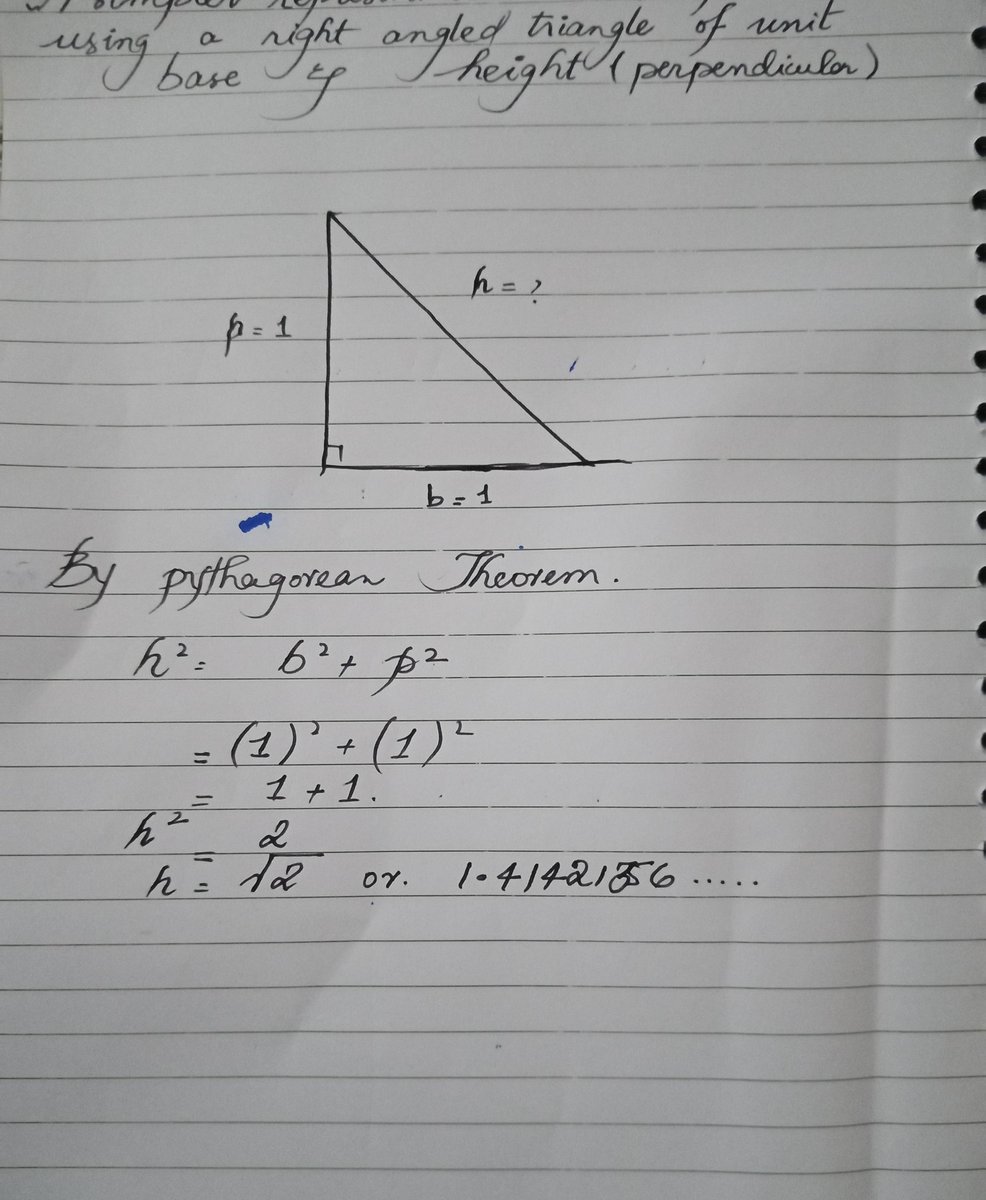 using a right angled triangle of unit
base & height (perpendicular)
h = ?
p = 1
b = 1
By pythagorean Theorem.
h² = b² + p²
= (1)² + (1)²
= 1 + 1.
h² = 2
h = √2 or. 1.4142156.....